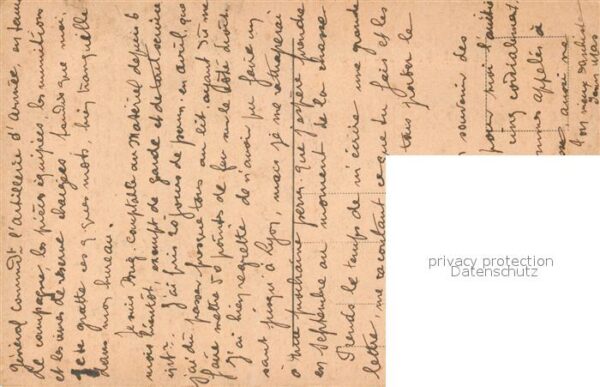 Général commdt l'artillerie d'Armée, en tenue
de campagne, les pièces équipées, les munitions
et les vivres de réserve chargés, tandis que moi,
je te gratte ces qques mots, bien tranquille
dans mon bureau.
Je suis Mag. comptable au Matériel depuis 6
mois bientôt, exempt de garde et de tout service
J'ai pris 20 jours de perm. en avril, que
j'ai dû passer presque tous au lit ayant dû me
faire mettre 50 points de feu sur le côté droit.
J'ai bien regretté de n'avoir pu faire un
saut jusqu'à Lyon, mais je me rattraperai
à une prochaine perm. que j'espère prendre
en septembre au moment de la chasse
Prends le temps de m'écrire une grande
lettre, me racontant ce que tu fais et les
souvenir des
pour moi
cordialement
appelés à
avoir
privacy protection
Datenschutz